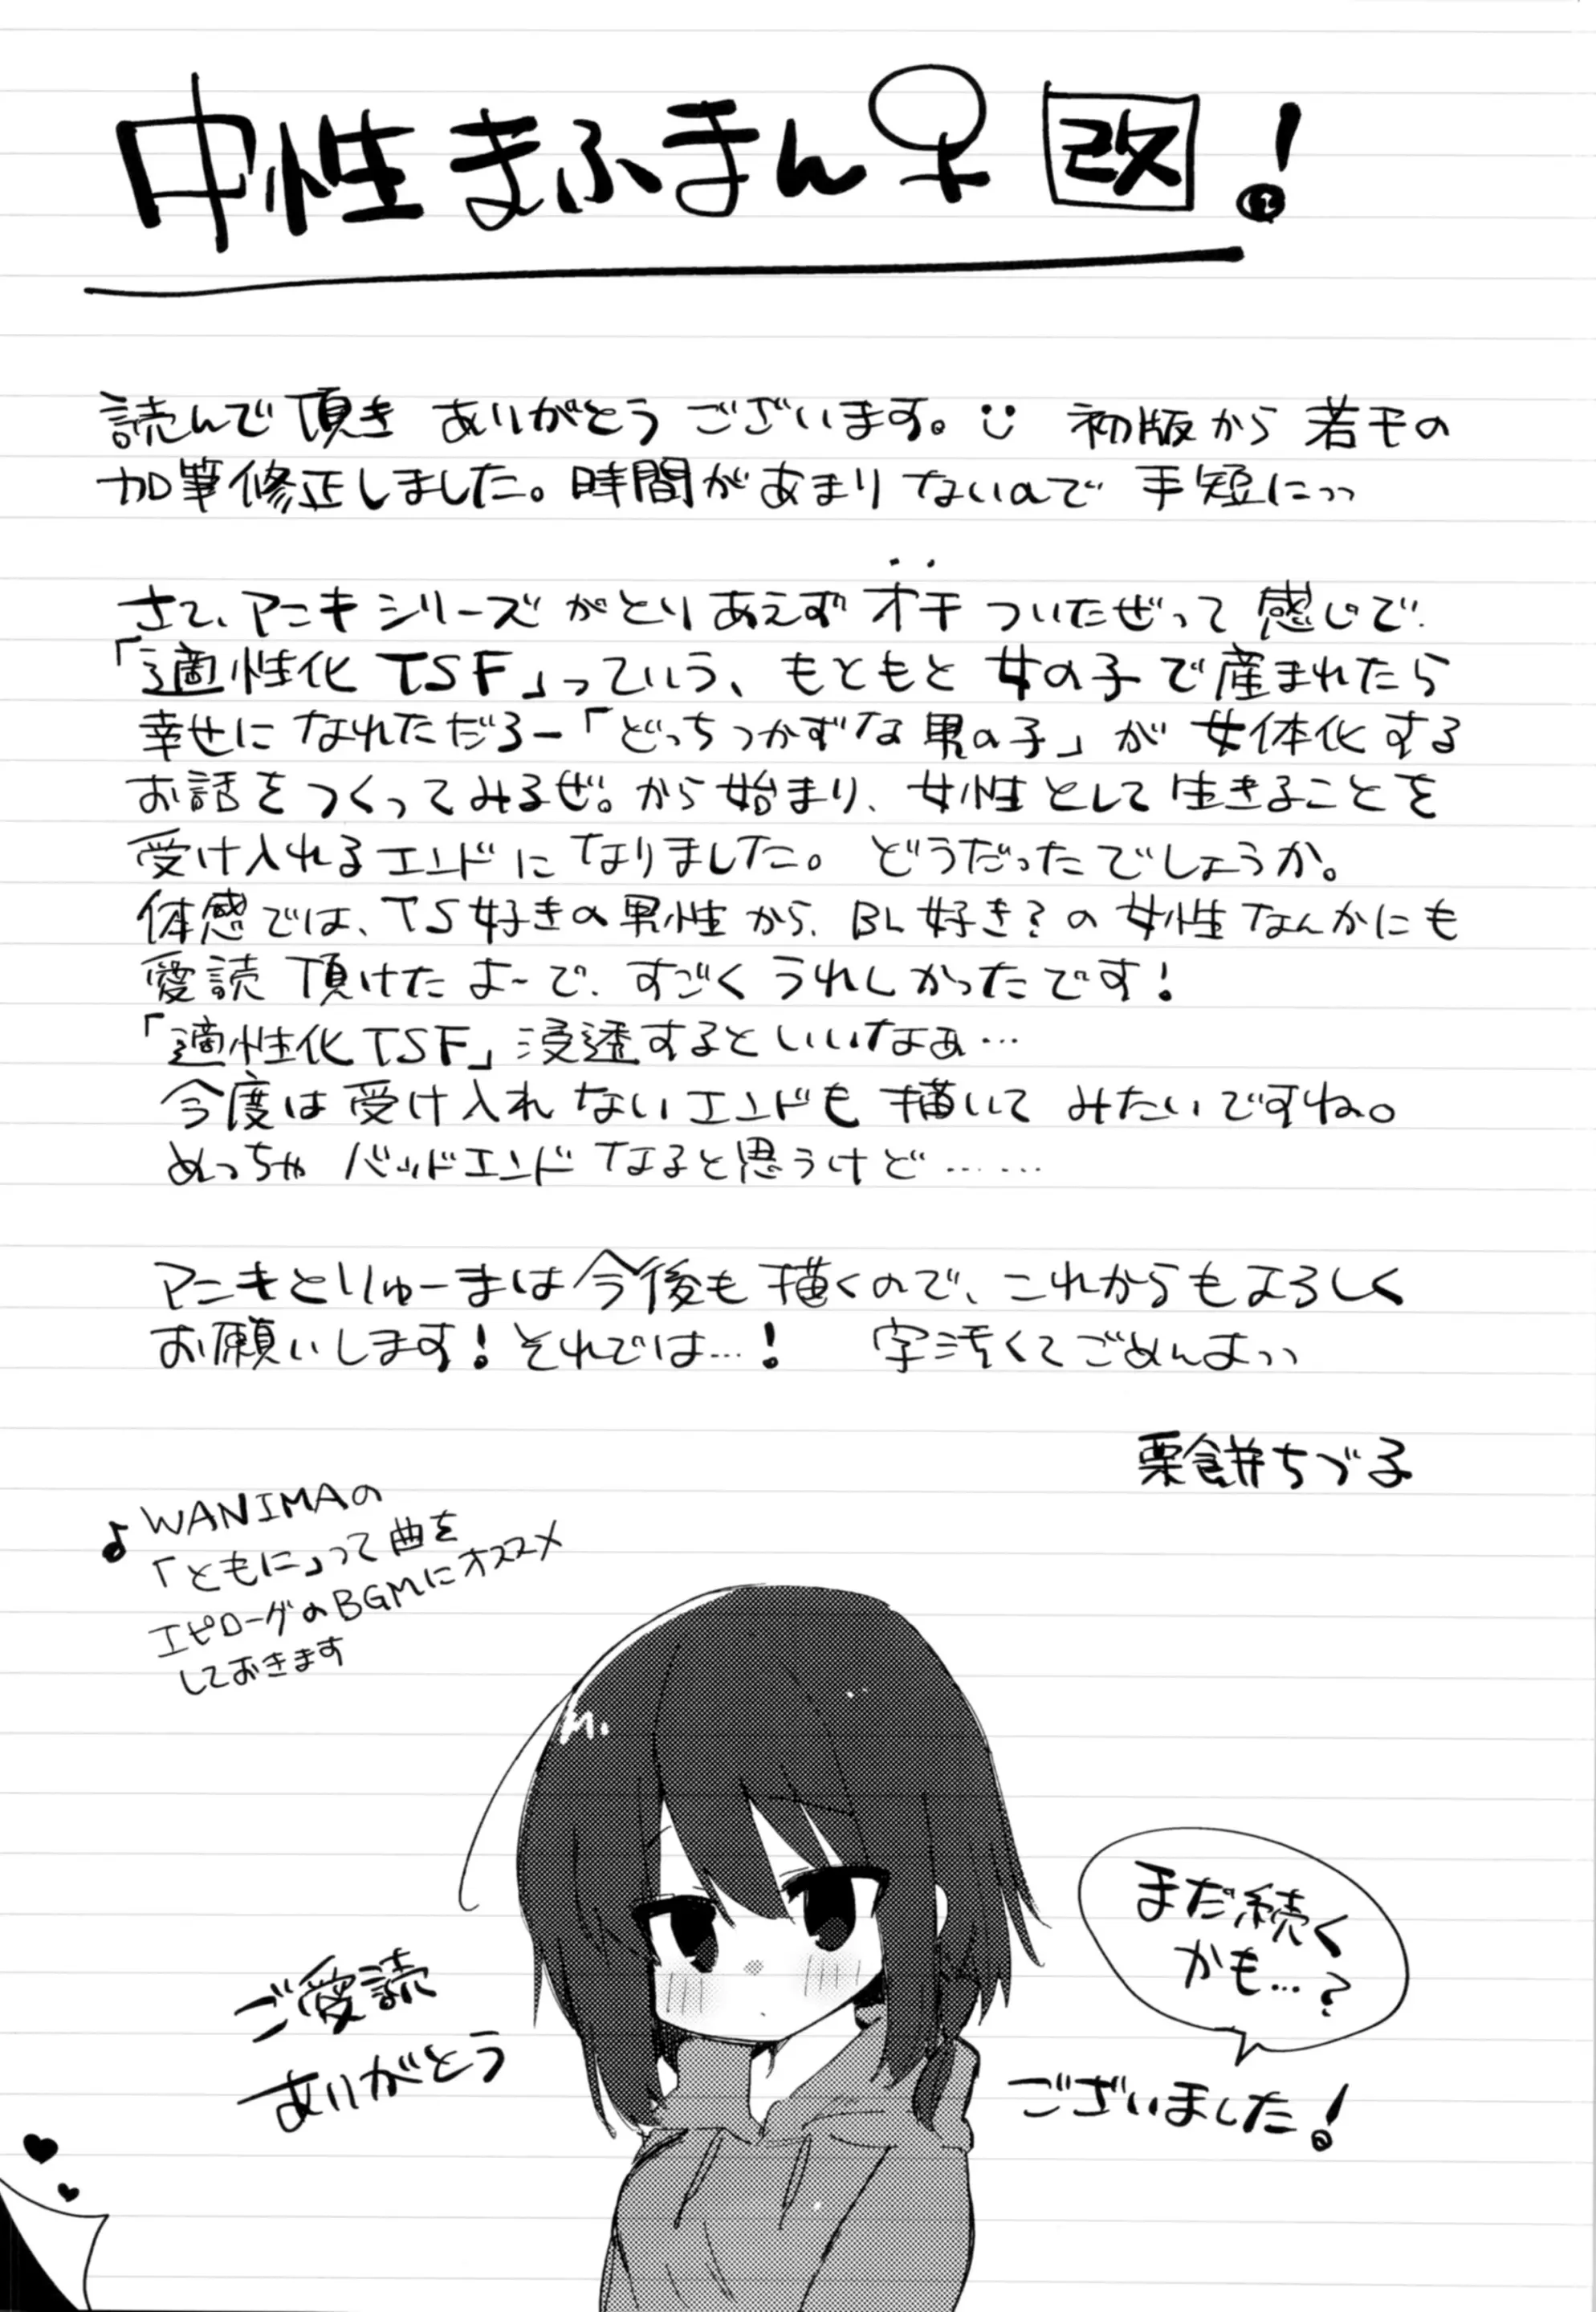 中性まふまん♀ 改!
読んで頂き ありがとう ございます。 初版から 若干の
加筆修正しました。時間が あまり ないので 手短にっっ
さて、アニキ シリーズ がとりあえず オチ ついたぜって 感じで
「適性化 TSF」っていう、もともと 女の子で産まれたら
幸せに なれただろー「どっちつかずな 男の子」が 女体化する
お話を つくってみるぜ。から始まり、女性として 生きることを
受け入れる エンドに なりました。 どうだったでしょうか。
体感では、TS好きの男性から、BL好き?の 女性なんかにも
愛読 頂けた よーで、すごく うれしかったです!
「適性化TSF」浸透するといいなぁ…
今度は 受け入れ ないエンドも 描いて みたいですね。
めっちゃ バッドエンド なると思うけど……
アニキとりゅーまは今後も 描くので、これからもよろしく
お願いします!それでは…! 字汚くてごめんよっっ
栗餅ちづる
♪WANIMAの
「ともに」って曲を
エピローグのBGMにオススメ
しておきます
まだ続く
かも…?
ご愛読
ありがとう
ございました!